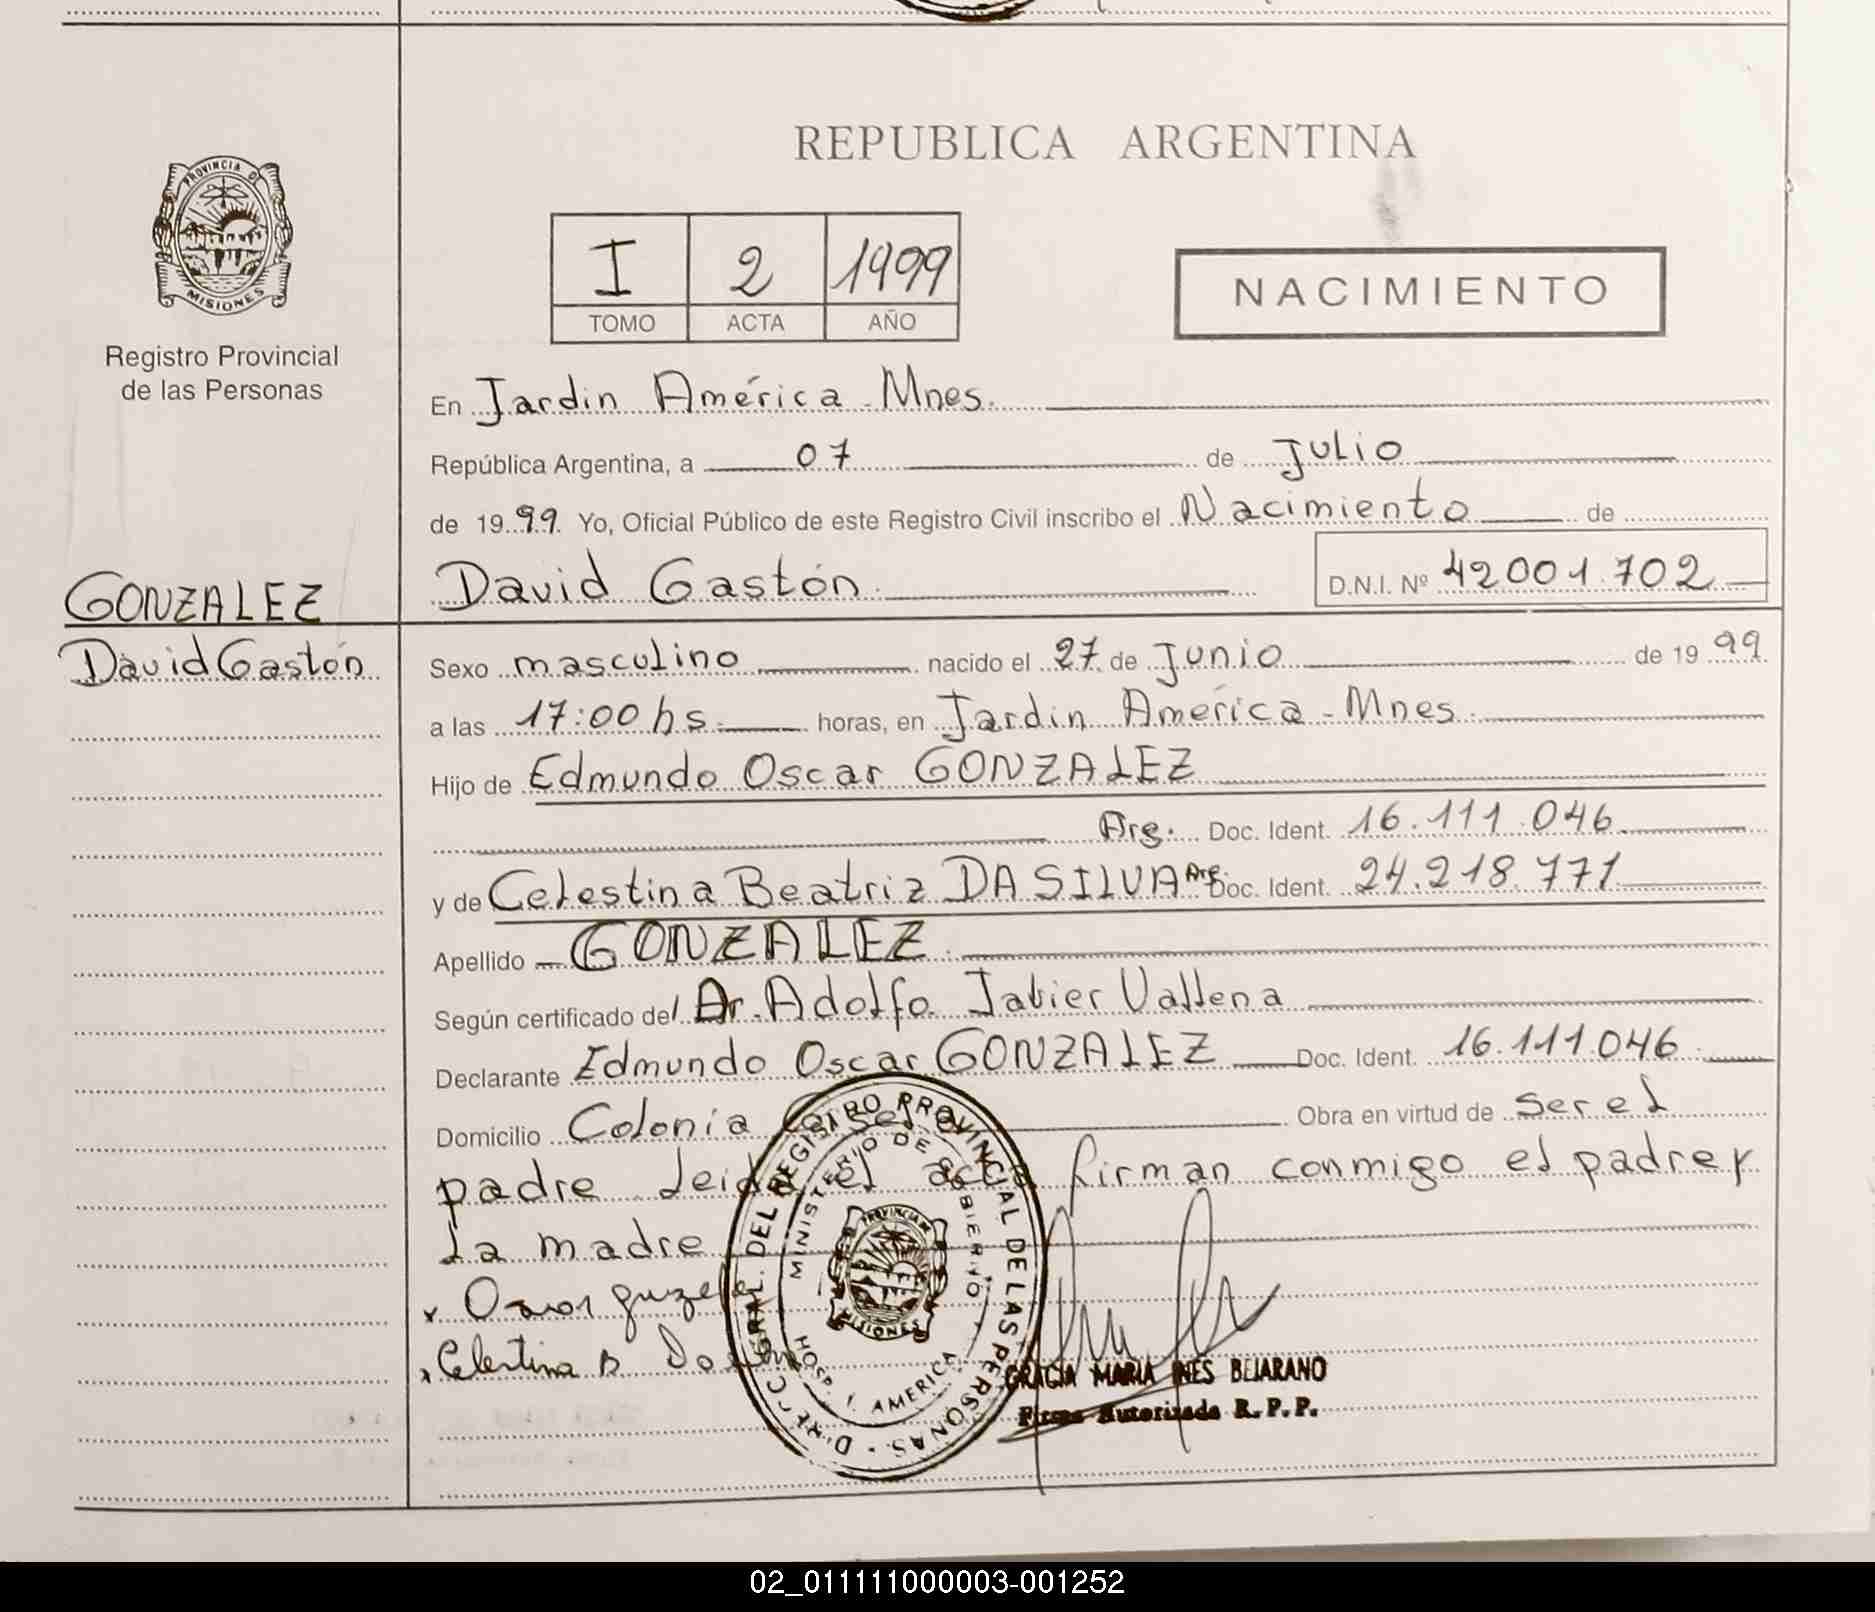 PROVINCIA DE
MISIONES
Registro Provincial
de las Personas
GONZALEZ
David Gastón
REPUBLICA ARGENTINA
I 2 1999
TOMO ACTA AÑO
NACIMIENTO
En Jardin América - Mnes.
República Argentina, a 07 de Julio
de 1999. Yo, Oficial Público de este Registro Civil inscribo el Nacimiento de
David Gastón. D.N.I. Nº 42001.702
Sexo masculino nacido el 27 de Junio de 1999
a las 17:00 hs. horas, en Jardin América - Mnes.
Hijo de Edmundo Oscar GONZALEZ
Arg. Doc. Ident. 16.111.046
y de Celestina Beatriz DA SILVA Arg. Doc. Ident. 24.218.771
Apellido GONZALEZ.
Según certificado del Dr. Adolfo Javier Vallena
Declarante Edmundo Oscar GONZALEZ Doc. Ident. 16.111.046
Domicilio Colonia Obra en virtud de ser el
padre leida el acta firman conmigo el padre y
la madre
Celestina B
DIRECC. GRAL. DEL REGISTRO PROVINCIAL DE LAS PERSONAS
MINISTERIO DE GOBIERNO
HOSP. J. AMERICA
PROVINCIA DE
MISIONES
GRACIA MARIA INES BEJARANO
Firma Autorizada R.P.P.
02_011111000003-001252